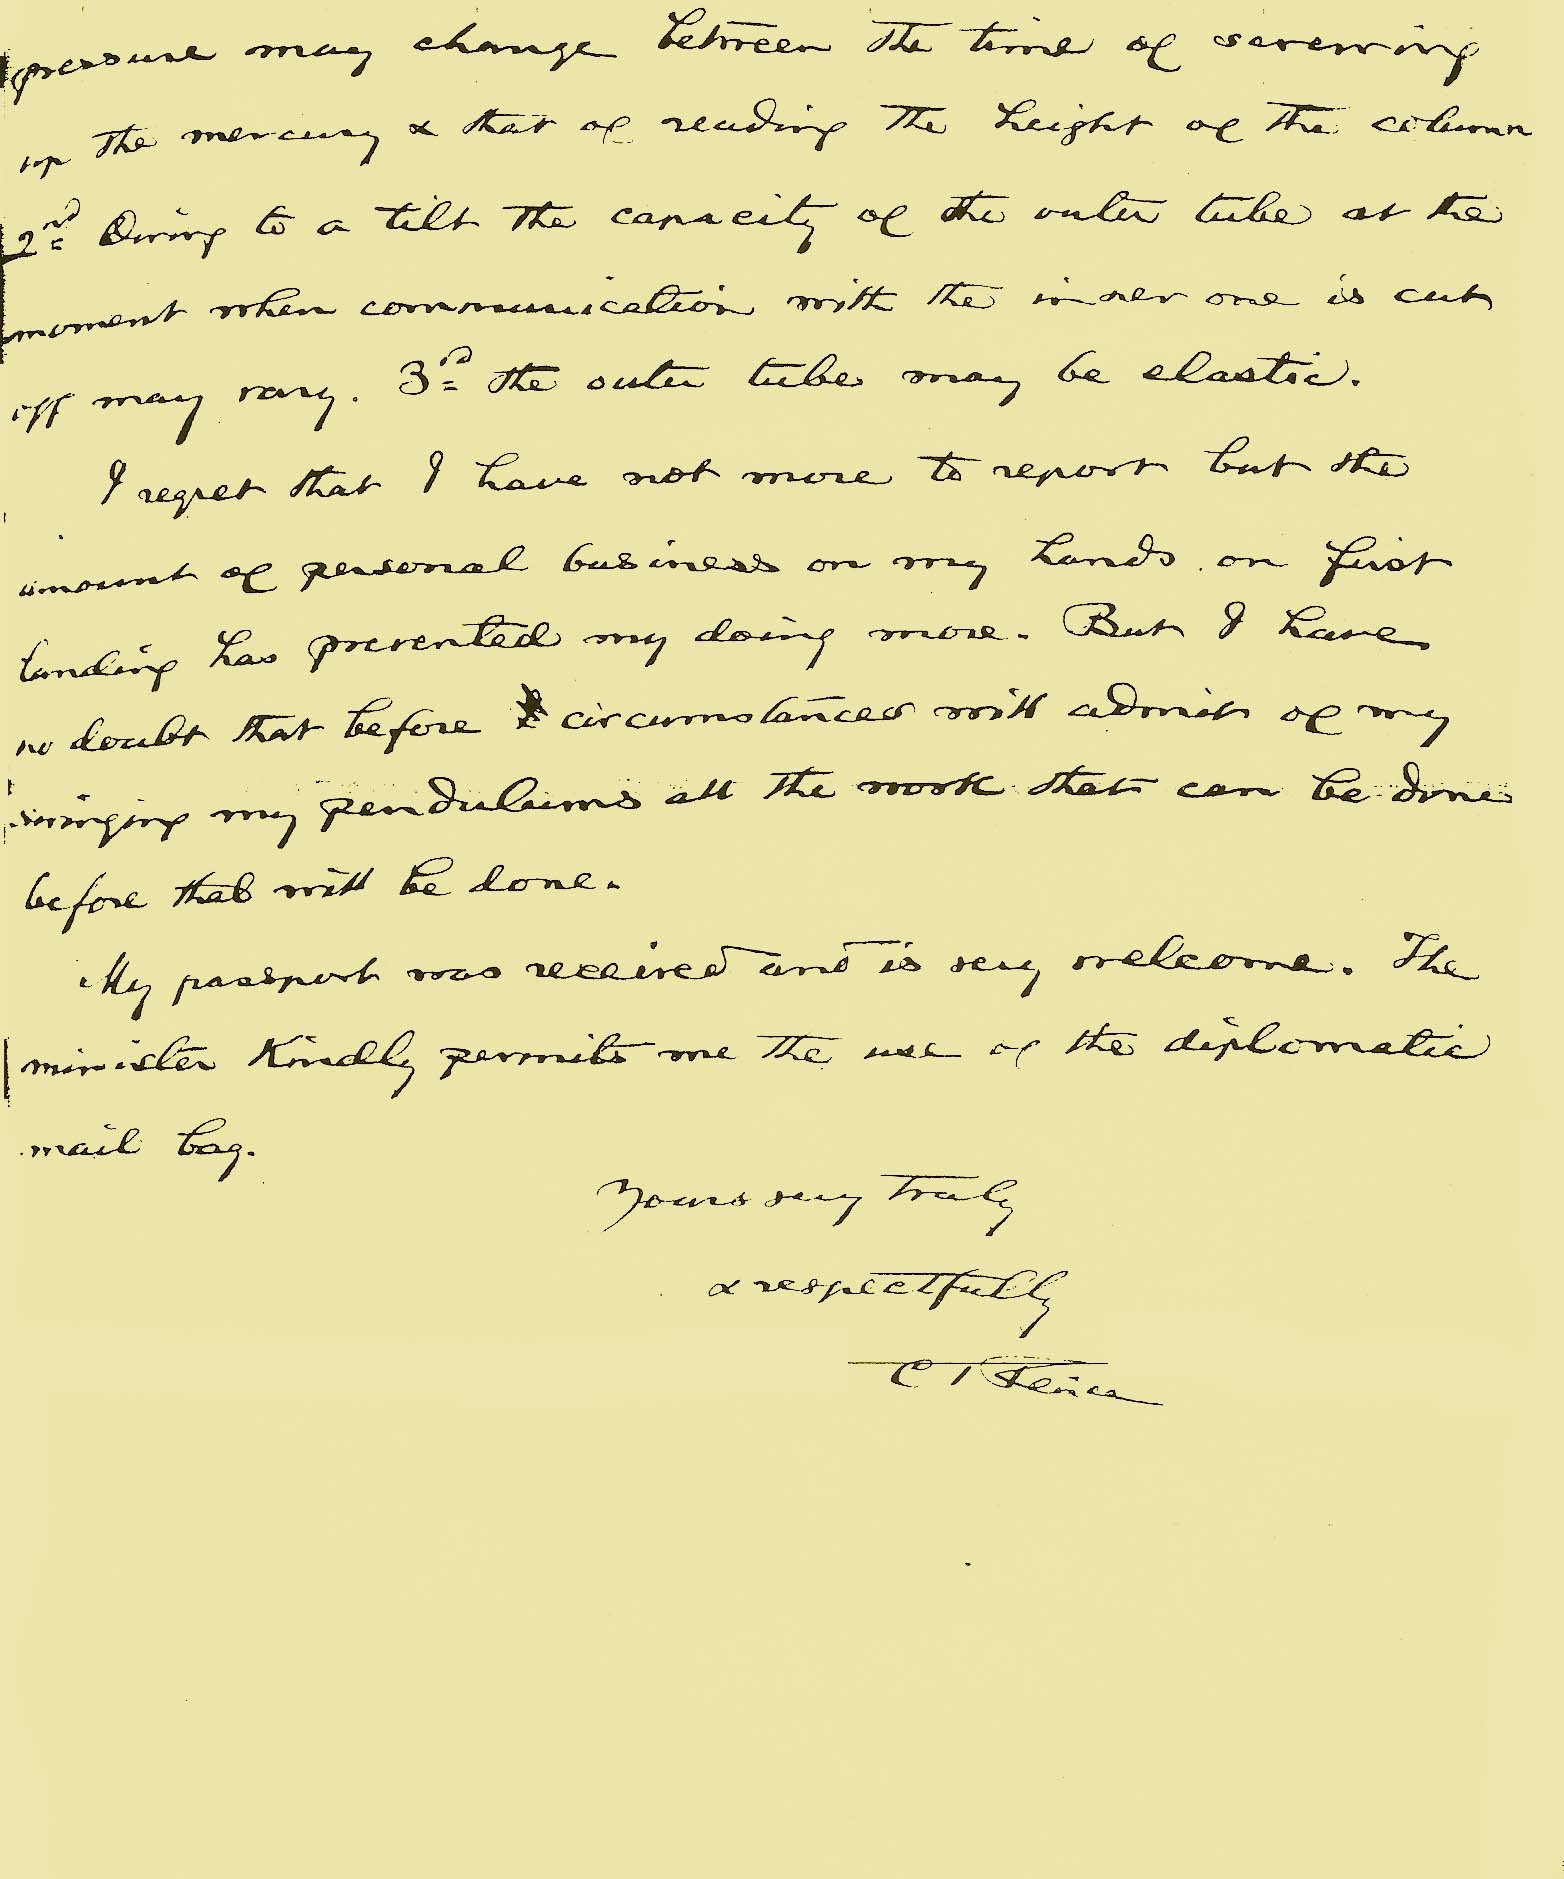 pressure may change between the time of screwing
up the mercury & that of reading the height of the column
2nd Owing to a tilt the capacity of the outer tube at the
moment when communication with the inner one is cut
off may vary. 3rd the outer tube may be elastic.
I regret that I have not more to report but the
amount of personal business on my hands on first
landing has prevented my doing more. But I have
no doubt that before circumstances will admit of my
swinging my pendulums all the work that can be done
before that will be done.
My passport was received and is very welcome. The
minister kindly permits me the use of the diplomatic
mail bag.
Yours very truly
& respectfully
C S Peirce